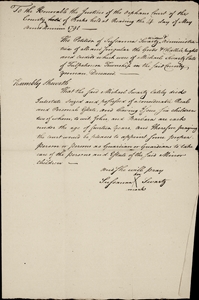 To the Honorable the Justices of the Orphans Court of the
County of Berks held at Reading the 4th day of May
Anno Domini 1795
The Petition of Susanna Swartz Administra-
trix of all and singular the Goods & Chattels rights
and credits which were of Michael Swartz late
of Township in the said County
Yeoman Deceased
Humbly Sheweth
That the said Michael Swartz lately died
Intestate Seized and possessed of a considerable Real
and Personal Estate, and leaving Issue children
two of whom, to wit John, and Barbara are each
under the age of fourteen Years, and therefore praying
the court would be pleased to appoint some proper
Person or Persons as Guardian or Guardians to take
care of the persons and Estate of the said Minor
children
and she will pray
Susanna Swartz
mark